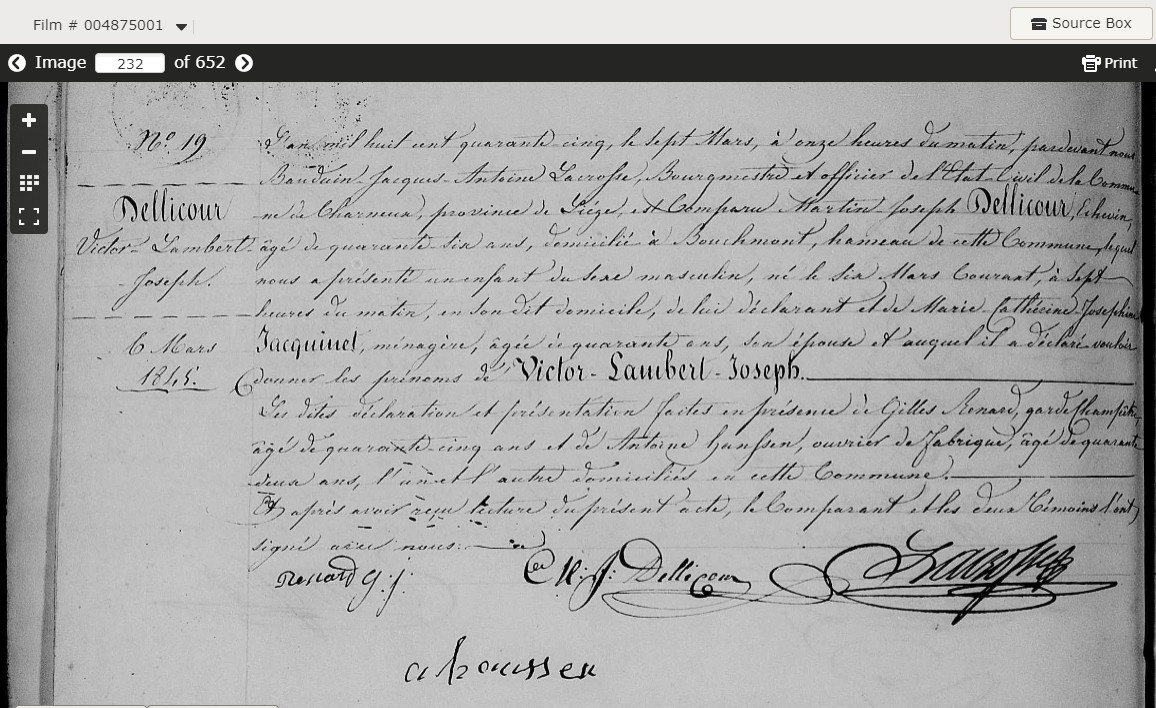 Film # 004875001
Source Box
Image 232 of 652
Print
N° 19
Dellicour
Victor-Lambert-
Joseph.
6 Mars
1845.
L'an mil huit cent quarante-cinq, le sept Mars, à onze heures du matin, pardevant nous
Bauduin-Jacques-Antoine Lacrosse, Bourgmestre et officier de l'Etat-Civil de la Commu-
ne de Charneux, province de Liége, est Comparu Martin-Joseph Dellicour, Echevin,
âgé de quarante six ans, domicilié à Bouchmont, hameau de cette Commune, lequel
nous a présenté un enfant du sexe masculin, né le six Mars Courant, à sept
heures du matin, en son dit domicile, de lui déclarant et de Marie-Catherine-Josephine
Jacquinet, ménagère, âgée de quarante ans, son épouse et auquel il a déclaré vouloir
donner les prénoms de Victor-Lambert-Joseph.
Les dites déclaration et présentation faites en présence de Gilles Renard, garde Champêtre,
âgé de quarante-cinq ans et de Antoine Hanssen, ouvrier de fabrique, âgé de quarante
deux ans, l'un et l'autre domiciliés en cette Commune.
Et après avoir reçu lecture du présent acte, le Comparant et les deux Témoins l'ont
signé avec nous.
renard g. j. M. J. Dellicour Lacrosse
a haussen